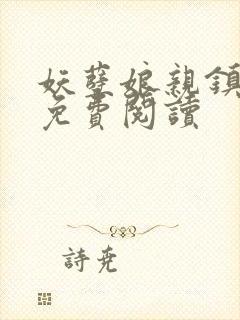 妖孽娘親鎮
免費閱讀
詩堯